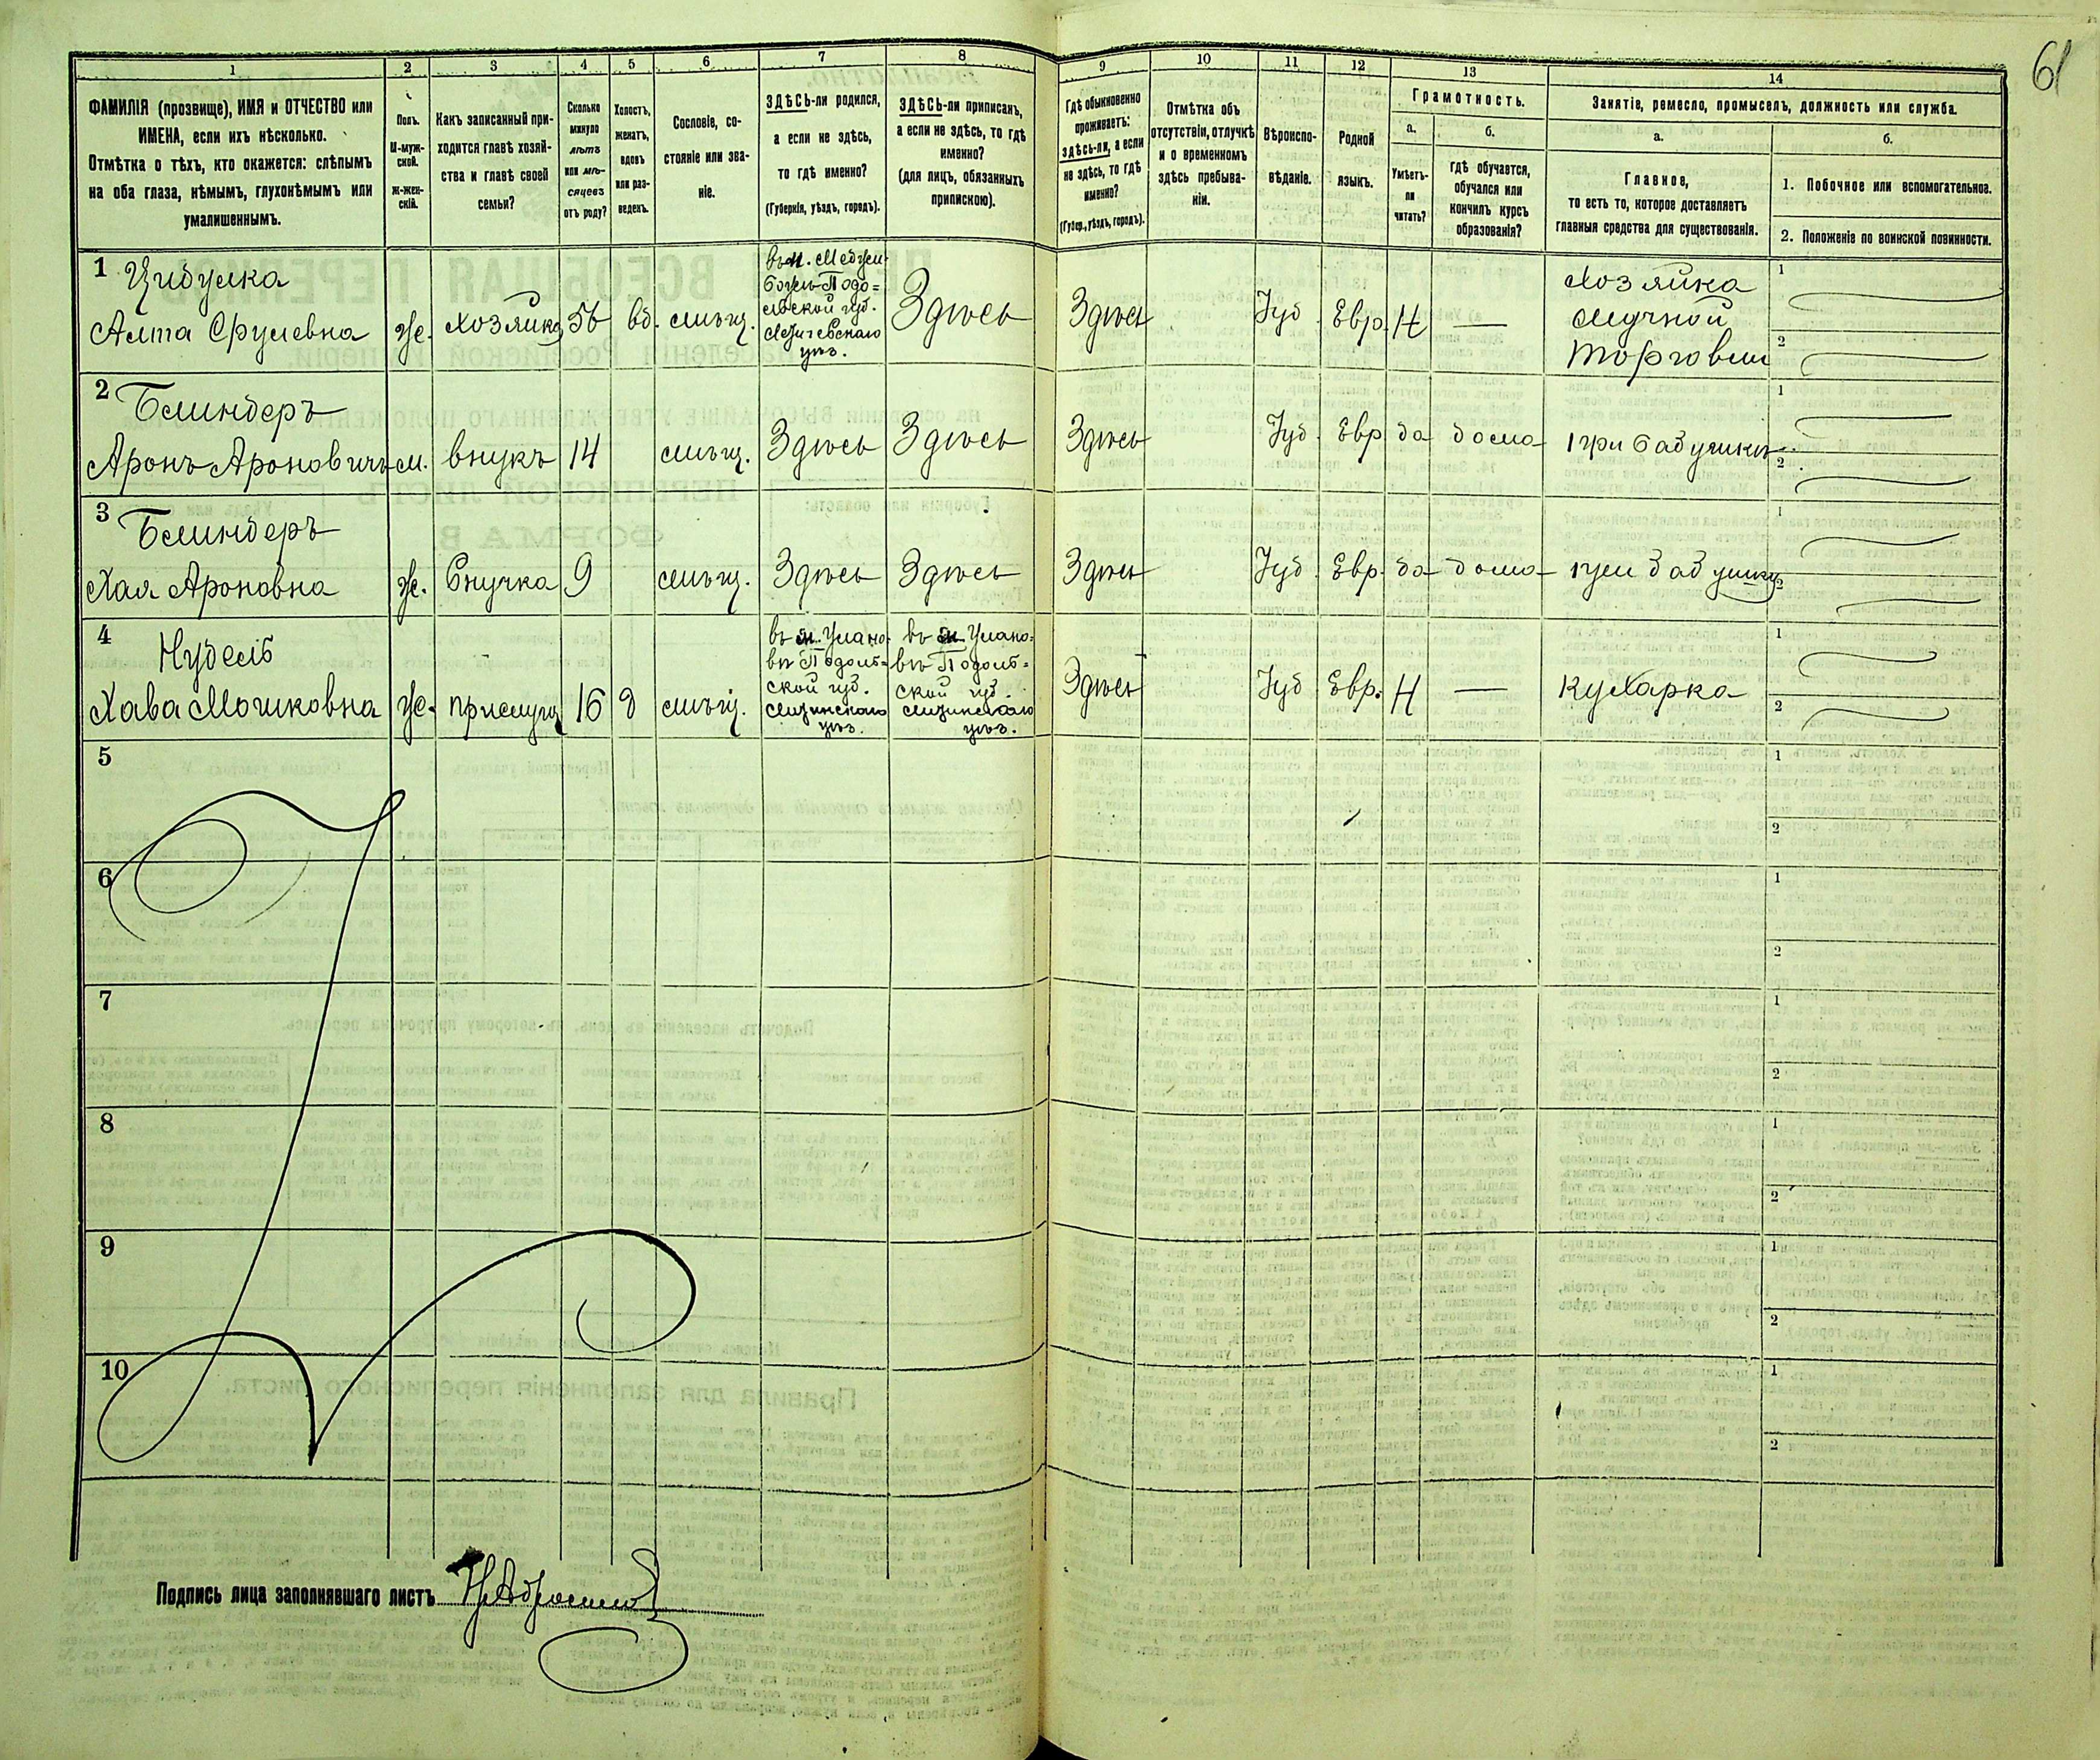 61
1
ФАМИЛІЯ (прозвище), ИМЯ и ОТЧЕСТВО или
ИМЕНА, если ихъ нѣсколько.
Отмѣтка о тѣхъ, кто окажется: слѣпымъ
на оба глаза, нѣмымъ, глухонѣмымъ или
умалишеннымъ.
2
Полъ.
М-муж-
ской.
Ж-жен-
скій.
3
Какъ записанный при-
ходится главѣ хозяй-
ства и главѣ своей
семьи?
4
Сколько
минуло
лѣтъ
или мѣ-
сяцевъ
отъ роду?
5
Холостъ,
женатъ,
вдовъ
или раз-
веденъ.
6
Сословіе, со-
стояніе или зва-
ніе.
7
ЗДѢСЬ-ли родился,
а если не здѣсь,
то гдѣ именно?
(Губернія, уѣздъ, городъ).
8
ЗДѢСЬ-ли приписанъ,
а если не здѣсь, то гдѣ
именно?
(для лицъ, обязанныхъ
припискою).
9
Гдѣ обыкновенно
проживаетъ:
здѣсь-ли, а если
не здѣсь, то гдѣ
именно?
(Губер., уѣздъ, городъ).
10
Отмѣтка объ
отсутствіи, отлучкѣ
и о временномъ
здѣсь пребыва-
ніи.
11
Вѣроиспо-
вѣданіе.
12
Родной
языкъ.
13
Грамотность.
а.
Умѣетъ-
ли
читать?
б.
Гдѣ обучается,
обучался или
кончилъ курсъ
образованія?
14
Занятіе, ремесло, промыселъ, должность или служба.
а.
Главное,
то есть то, которое доставляетъ
главныя средства для существованія.
б.
1. Побочное или вспомогательное.
2. Положеніе по воинской повинности.
1
Цибулка
Алта Срулевна
же.
хозяйка
56
вд.
мѣщ.
въ м. Меджи-
божъ Подо=
льской губ.
Летичевскаго
уѣз.
Здѣсь
Здѣсь
Іуд.
Евр.
Н
—
Хозяйка
мучной
торговли
1
2
2
Блиндеръ
Аронъ Ароновичъ
м.
внукъ
14
мѣщ.
Здѣсь
Здѣсь
Здѣсь
Іуд.
Евр
да
дома
при бабушкѣ
1
2
3
Блиндеръ
Хая Ароновна
же.
внучка
9
мѣщ.
Здѣсь
Здѣсь
Здѣсь
Іуд.
Евр.
да
дома
при бабушкѣ
1
2
4
Нудель
Хава Мошковна
же.
прислуга
16
д
мѣщ.
въ м. Улано-
вѣ Подоль-
ской губ.
Литинскаго
уѣз.
въ м. Улано-
вѣ Подоль-
ской губ.
Литинскаго
уѣз.
Здѣсь
Іуд
Евр.
Н
—
кухарка
1
2
5
1
2
6
1
2
7
1
2
8
1
2
9
1
2
10
1
2
Подпись лица заполнявшаго листъ